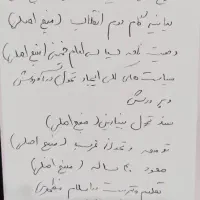 بیانیه گام دوم انقلاب (منبع اصلی)
وصیت نامه سیاسی امام خمینی (منبع اصلی)
سیاست های کلی ایجاد تحول در آموزش
و پرورش
سند تحول بنیادین (منبع اصلی)
توسعه و تمدن غرب (منبع اصلی)
صعود ۴۰ ساله (منبع اصلی)
تعلیم و تربیت در اسلام مطهری